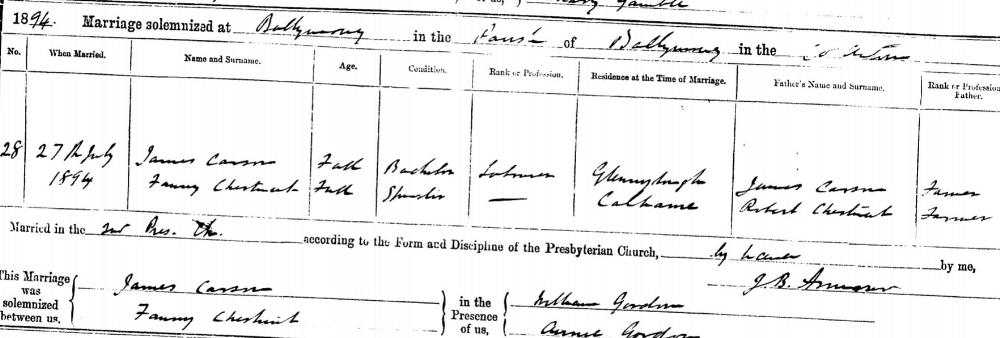 Gamble
1894. Marriage solemnized at Ballymoney in the Parish of Ballymoney in the Co Antrim
No. When Married. Name and Surname. Age. Condition. Rank or Profession. Residence at the Time of Marriage. Father's Name and Surname. Rank or Profession Father.
28 27th July James Carson Full Bachelor Labourer James Carson Farmer
1894 Fanny Chestnut Full Spinster — Calhame Robert Chestnut Farmer
Married in the 2nd Pres. Ch. according to the Form and Discipline of the Presbyterian Church, by licence by me,
J. B. Armour
This Marriage was solemnized between us, James Carson
Fanny Chestnut
in the Presence of us, William Gordon
Annie Gordon